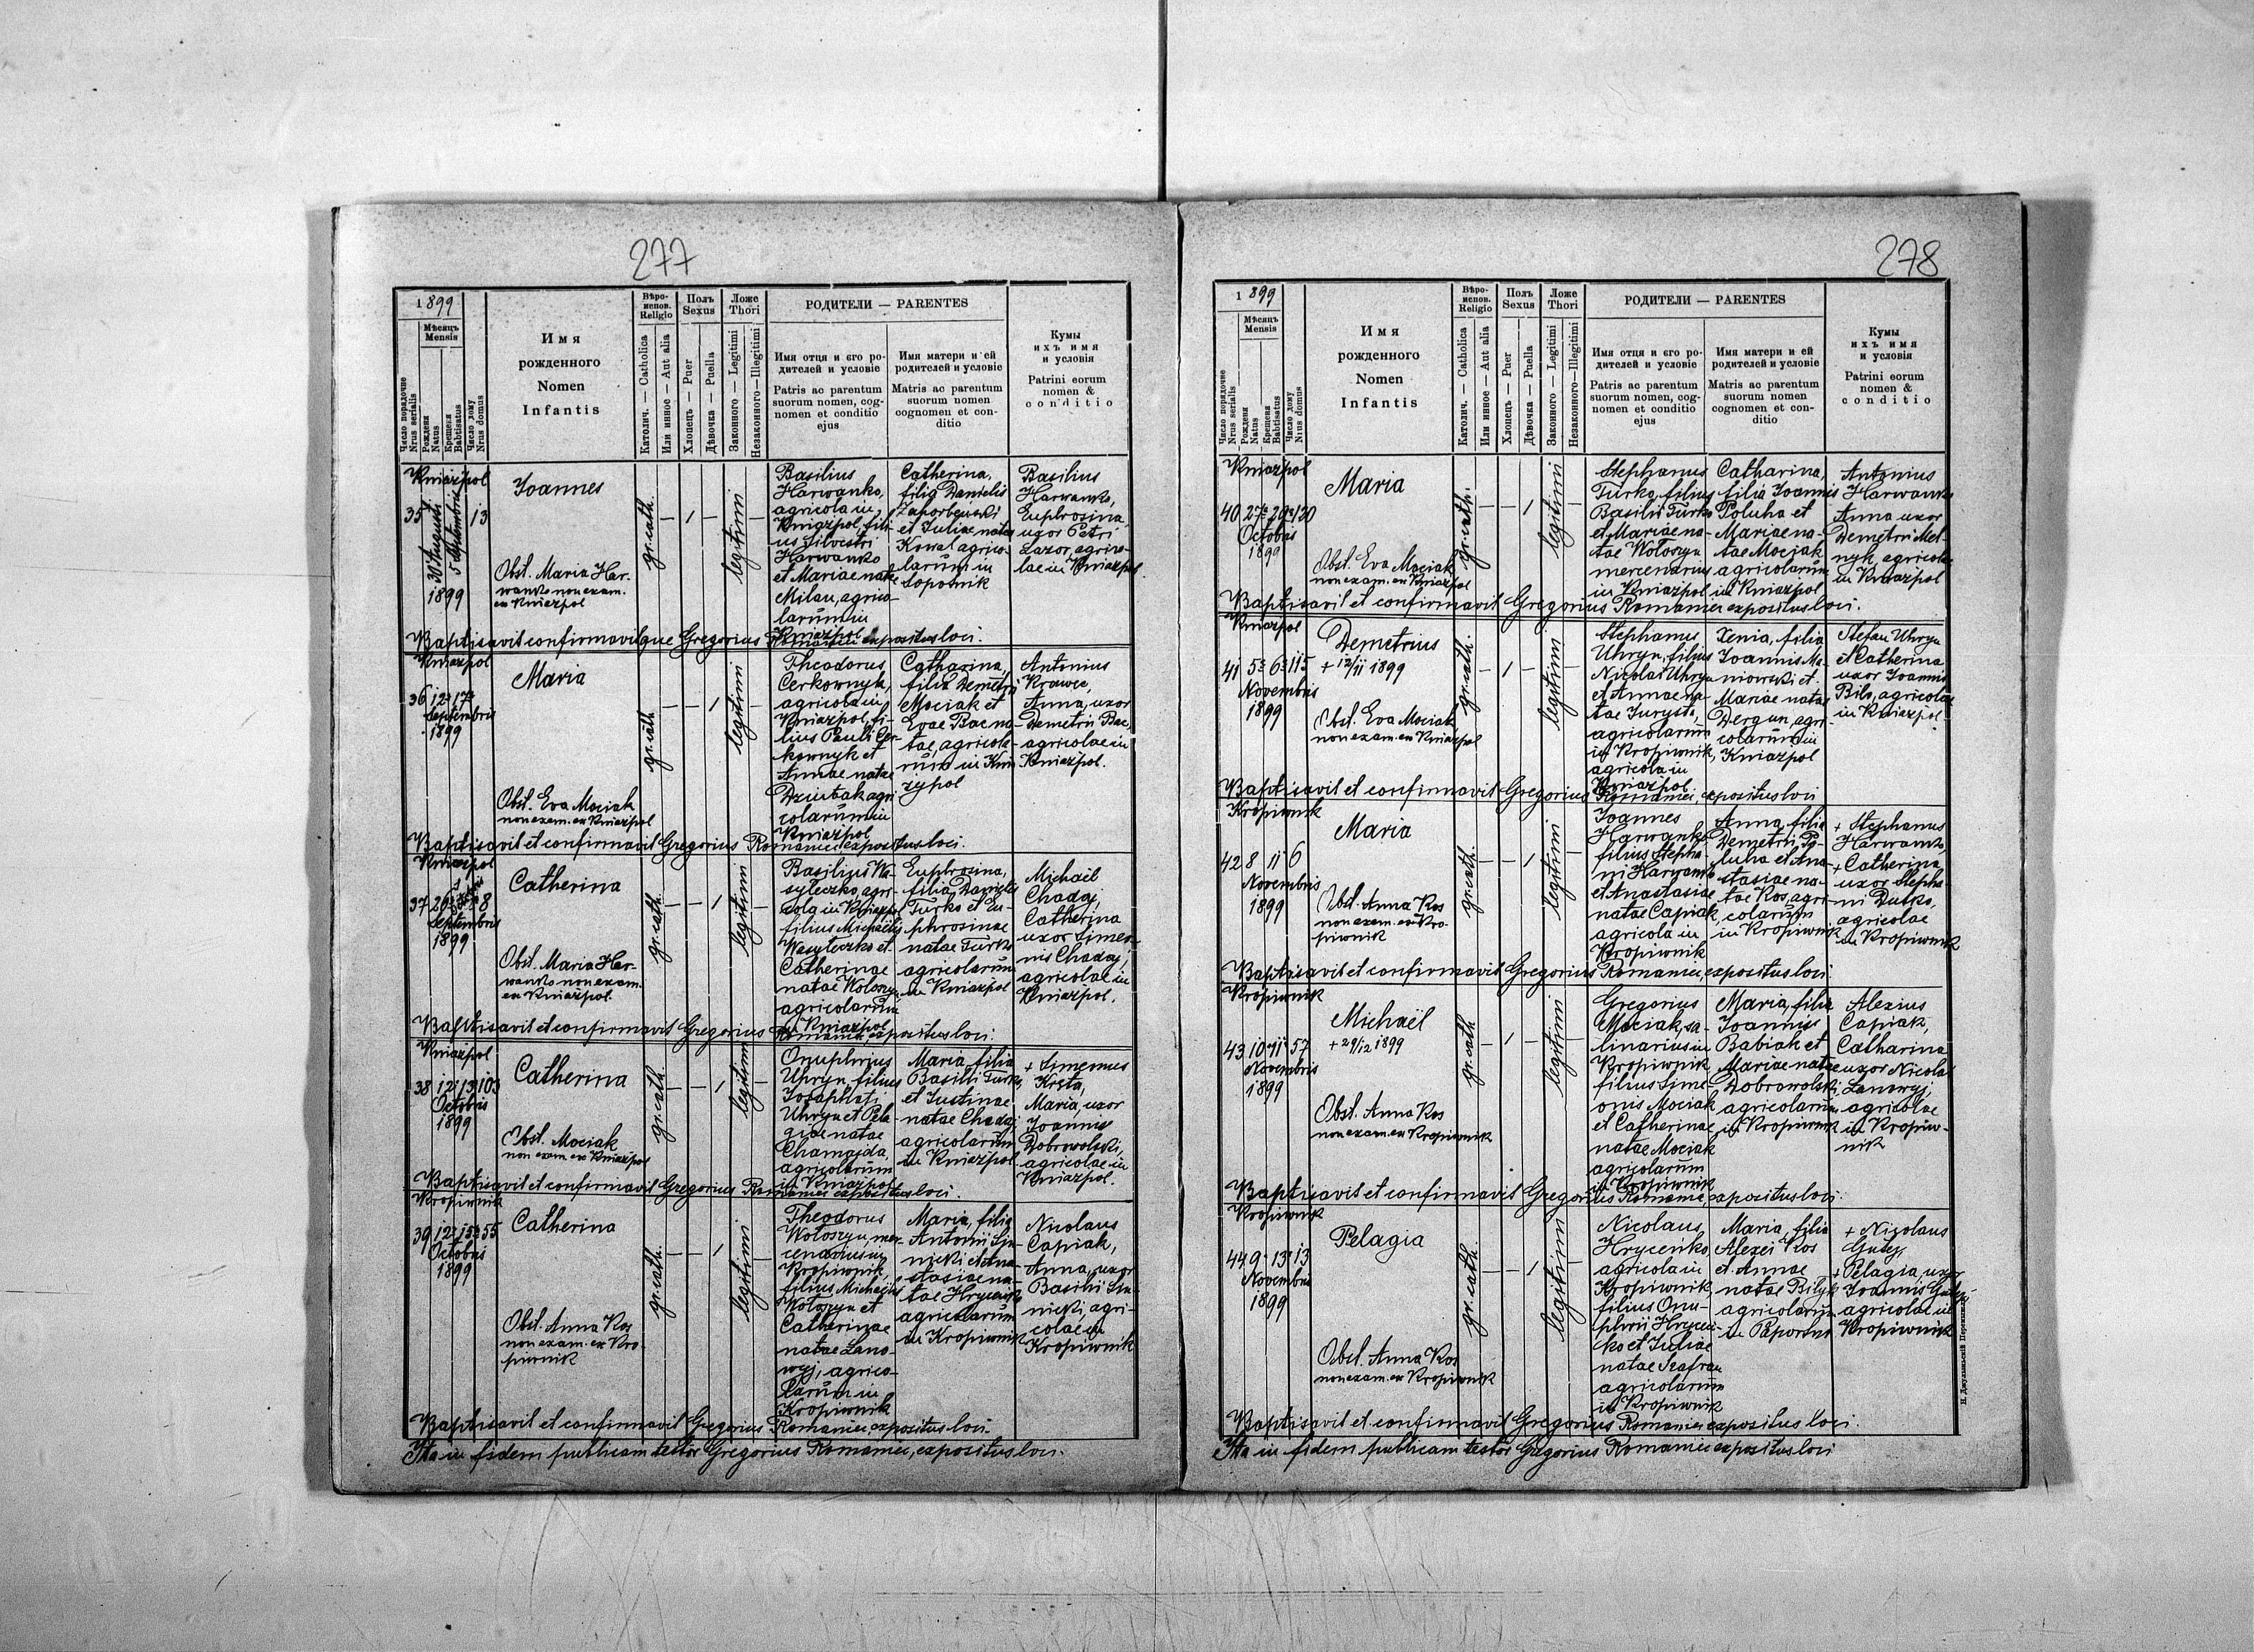 277
1899
Мѣсяць
Mensis
Число порядочне
Nrus serialis
Рожденя
Natus
Крещеня
Babtisatus
Число дому
Nrus domus
Имя
рожденного
Nomen
Infantis
Вѣро-
испов.
Religio
Католич. — Catholica
Или инное — Aut alia
Полъ
Sexus
Хлопець — Puer
Дѣвочка — Puella
Ложе
Thori
Законного — Legitimi
Незаконного — Illegitimi
РОДИТЕЛИ — PARENTES
Имя отця и єго ро-
дителей и условіє
Patris ac parentum
suorum nomen, cog-
nomen et conditio
ejus
Имя матери и ей
родителей и условіє
Matris ac parentum
suorum nomen
cognomen et con-
ditio
Кумы
ихъ имя
и условія
Patrini eorum
nomen &
conditio
Kniażpol
35
30 Augusti
5 Septembris
1899
13
Joannes
Obst. Maria Har-
wanko non exam.
ex Kniażpol
gr. cath.
— 1 —
legitimi
Basilius
Harwanko,
agricola in
Kniażpol, fili-
us Silvestri
Harwanko
et Mariae natae
Milan, agrico-
larum in
Kniażpol
Catherina,
filia Danielis
et Juliae natae
Kowal agrico-
larum in
Łopośnik
Basilius
Harwanko,
Euphrosina,
uxor Petri
Lazor, agrico-
lae in Kniażpol
Baptisavit confirmavitque Gregorius Romanier expositus loci.
Kniażpol
36 12 17
Septembris
1899
Maria
Obst. Eva Mociak
non exam. ex Kniażpol
gr. cath
— — 1 —
legitimi
Theodorus
Cerkownyk,
agricola in
Kniażpol, fi-
lius Pauli Cer-
kownyk et
Annae natae
Dziubak agri-
colarum in
Kniażpol
Catharina,
filia Demetrii
Mociak et
Evae Bac na-
tae, agricola-
rum in Knia-
żypol
Antonius
Krawec,
Anna, uxor
Demetrii Bac,
agricolae in
Kniażpol.
Baptisavit et confirmavit Gregorius Romanier expositus loci.
Kniażpol
37 26
8
Septembris
1899
Catherina
Obst. Maria Har-
wanko non exam.
ex Kniażpol.
gr. cath.
— — 1 —
legitimi
Basilius Wa-
syleczko, agri-
cola in Kniażpol
filius Michaelis
Wasyleczko et
Catherinae
natae Wołoszyn
agricolarum
in Kniażpol
Euphrosina,
filia Danielis
Turko et Eu-
phrosinae
natae Turko
agricolarum
in Kniażpol
Michaël
Chaday,
Catherina
uxor Simeo-
nis Chaday,
agricolae in
Kniażpol.
Baptisavit et confirmavit Gregorius Romanier, expositus loci.
Kniażpol
38 12 13 103
Octobris
1899
Catherina
Obst. Mociak
non exam. ex Kniażpol
gr. cath
— — 1 —
legitimi
Onuphrius
Uhryn, filius
Josaphati
Uhryn et Pela-
giae natae
Chamajda,
agricolarum
in Kniażpol
Maria, filia
Basilii Turko
et Justinae
natae Chaday
agricolarum
in Kniażpol
+ Simeonus
Krsta,
Maria, uxor
Joannis
Dobrowolski,
agricolae in
Kniażpol.
Baptisavit et confirmavit Gregorius Romanier expositus loci.
Kropiwnik
39 12 15 55
Octobris
1899
Catherina
Obst. Anna Kos
non exam. ex Kro-
piwnik
gr. cath.
— — 1 —
legitimi
Theodorus
Wołoszyn, mer-
cenarius in
Kropiwnik,
filius Michaelis
Wołoszyn et
Catherinae
natae Lano-
wyj, agrico-
larum in
Kropiwnik
Maria, filia
Antonii Sja-
nicki et Ana-
stasiae na-
tae Hrycenko
agricolarum
in Kropiwnik
Nicolaus
Capiak,
Anna, uxor
Basilii Sja-
nicki, agri-
colae in
Kropiwnik
Baptisavit et confirmavit Gregorius Romanier expositus loci.
Ita in fidem publicam testor Gregorius Romanier, expositus loci.
278
1899
Мѣсяць
Mensis
Число порядочне
Nrus serialis
Рожденя
Natus
Крещеня
Babtisatus
Число дому
Nrus domus
Имя
рожденного
Nomen
Infantis
Вѣро-
испов.
Religio
Католич. — Catholica
Или инное — Aut alia
Полъ
Sexus
Хлопець — Puer
Дѣвочка — Puella
Ложе
Thori
Законного — Legitimi
Незаконного — Illegitimi
РОДИТЕЛИ — PARENTES
Имя отця и єго ро-
дителей и условіє
Patris ac parentum
suorum nomen, cog-
nomen et conditio
ejus
Имя матери и ей
родителей и условіє
Matris ac parentum
suorum nomen
cognomen et con-
ditio
Кумы
ихъ имя
и условія
Patrini eorum
nomen &
conditio
Kniażpol
40 27 29 130
Octobris
1899
Maria
Obst. Eva Mociak
non exam. ex Kniażpol
gr. cath.
— — 1 —
legitimi
Stephanus
Turko, filius
Basilii Turko
et Mariae na-
tae Wołoszyn
mercenarius
in Kniażpol
Catharina,
filia Joannis
Poluha et
Mariae na-
tae Mociak
agricolarum
in Kniażpol
Antonius
Harwanko
Anna uxor
Demetrii Mel-
nyk, agricolae
in Kniażpol
Baptisavit et confirmavit Gregorius Romanier expositus loci.
Kniażpol
41 5 6 115
Novembris
1899
Demetrius
+ 12/11 1899
Obst. Eva Mociak
non exam. ex Kniażpol
gr. cath.
— 1 —
legitimi
Stephanus
Uhryn, filius
Nicolai Uhryn
et Annae na-
tae Jurysta,
agricolarum
in Kropiwnik,
agricola in
Kniażpol
Xenia, filia
Joannis Ma-
niowski et
Mariae natae
Dergun, agri-
colarum in
Kniażpol
Stefan Uhryn
et Catherina
uxor Joannis
Bilo, agricolae
in Kniażpol.
Baptisavit et confirmavit Gregorius Romanier, expositus loci
Kropiwnik
42 8 11 6
Novembris
1899
Maria
Obst. Anna Kos
non exam. ex Kro-
piwnik
gr. cath.
— — 1 —
legitimi
Joannes
Harwanko
filius Stepha-
ni Harwanko
et Anastasiae
natae Capiak,
agricola in
Kropiwnik
Anna, filia
Demetrii Po-
luha et Ana-
stasiae na-
tae Kos, agri-
colarum
in Kropiwnik
+ Stephanus
Harwanko,
+ Catherina,
uxor Stepha-
ni Dutko,
agricolae
in Kropiwnik
Baptisavit et confirmavit Gregorius Romanier, expositus loci.
Kropiwnik
43 10 11 57
Novembris
1899
Michaël
+ 29/12 1899
Obst. Anna Kos
non exam. ex Kropiwnik
gr. cath
— 1 —
legitimi
Gregorius
Mociak, sa-
linarius in
Kropiwnik
filius Sime-
onis Mociak
et Catherinae
natae Mociak
agricolarum
in Kropiwnik
Maria, filia
Joannis
Babiak et
Mariae natae
Dobrowolski,
agricolarum
in Kropiwnik
Alexius
Capiak,
Catharina
uxor Nicolai
Lanowyj,
agricolae
in Kropiw-
nik
Baptisavit et confirmavit Gregorius Romanier, expositus loci.
Kropiwnik
44 9 13 13
Novembris
1899
Pelagia
Obst. Anna Kos
non exam. ex Kropiwnik
gr. cath.
— — 1 —
legitimi
Nicolaus
Hrycenko
agricola in
Kropiwnik,
filius Onu-
phrii Hrycen-
ko et Juliae
natae Szafran
agricolarum
in Kropiwnik
Maria, filia
Alexii Kos
et Annae
natae Bilyk
agricolarum
in Paportno
+ Nicolaus
Gutej,
+ Pelagia, uxor
Joannis Gutej
agricolae in
Kropiwnik
Baptisavit et confirmavit Gregorius Romanier expositus loci.
Ita in fidem publicam testor Gregorius Romanier expositus loci